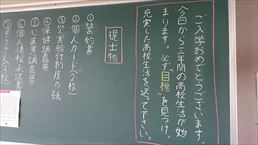 ご入学おめでとうございます。
今日から三年間の高校生活が始
まります。必ず「目標」を見つけ、
充実した高校生活を送って下さい。
提出物
①誓約書
②個人カード(2枚)
③災害給付制度の紙
④保健調査票
⑤心臓病調査票